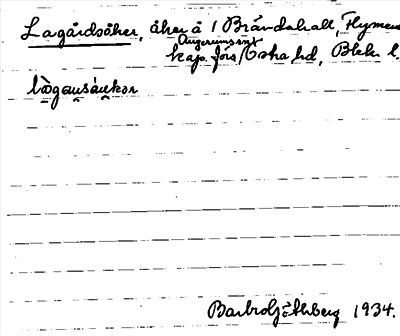 Lagårdsåker, åker å 1 Brändahall, Flymens
Augerumssnt
kap. förs/Östra hd, Blek. l.
làgausáukor
Barbro Göthberg 1934.